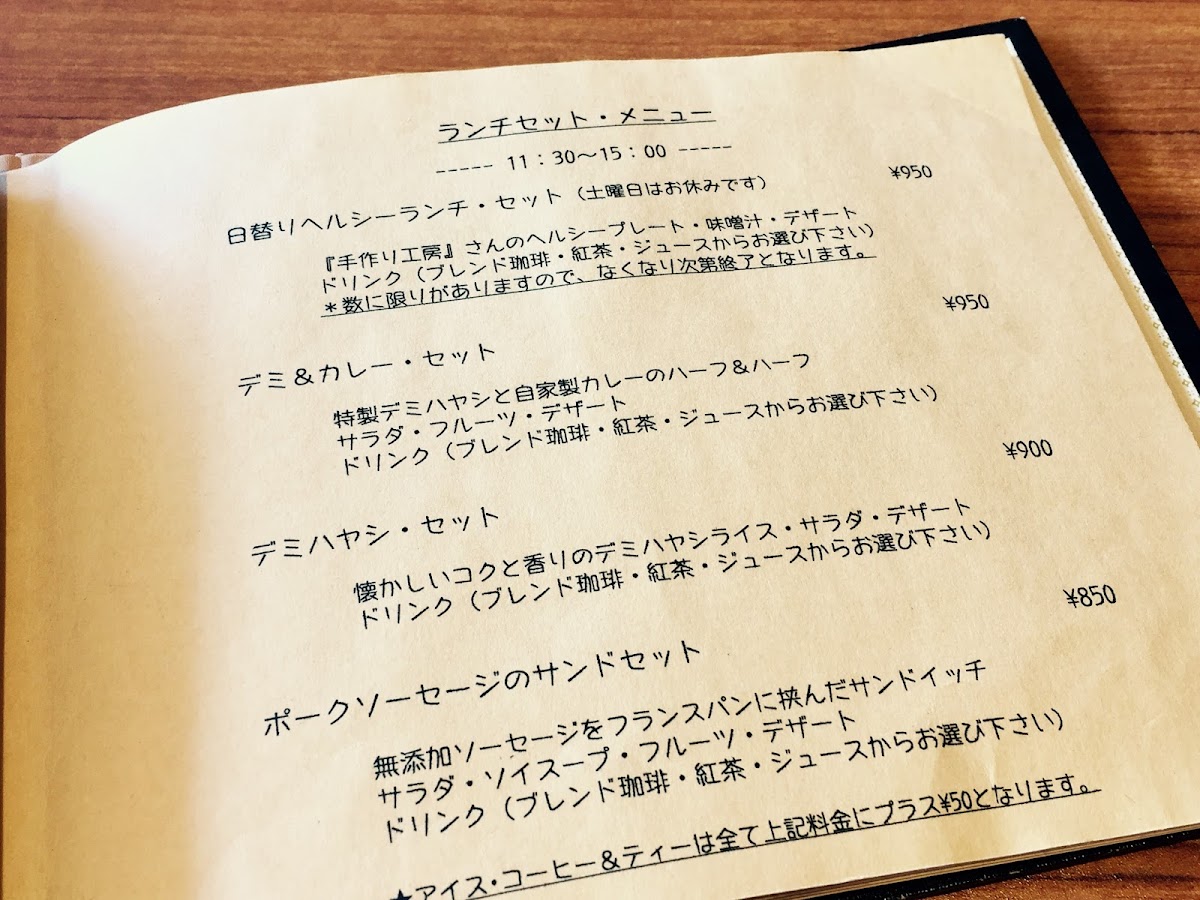 ランチセット・メニュー
----- 11：30～15：00 -----
日替りヘルシーランチ・セット（土曜日はお休みです） ¥950
『手作り工房』さんのヘルシープレート・味噌汁・デザート
ドリンク（ブレンド珈琲・紅茶・ジュースからお選び下さい）
＊数に限りがありますので、なくなり次第終了となります。
デミ＆カレー・セット ¥950
特製デミハヤシと自家製カレーのハーフ＆ハーフ
サラダ・フルーツ・デザート
ドリンク（ブレンド珈琲・紅茶・ジュースからお選び下さい）
デミハヤシ・セット ¥900
懐かしいコクと香りのデミハヤシライス・サラダ・デザート
ドリンク（ブレンド珈琲・紅茶・ジュースからお選び下さい）
ポークソーセージのサンドセット ¥850
無添加ソーセージをフランスパンに挟んだサンドイッチ
サラダ・ソイスープ・フルーツ・デザート
ドリンク（ブレンド珈琲・紅茶・ジュースからお選び下さい）
★アイス・コーヒー＆ティーは全て上記料金にプラス¥50となります。